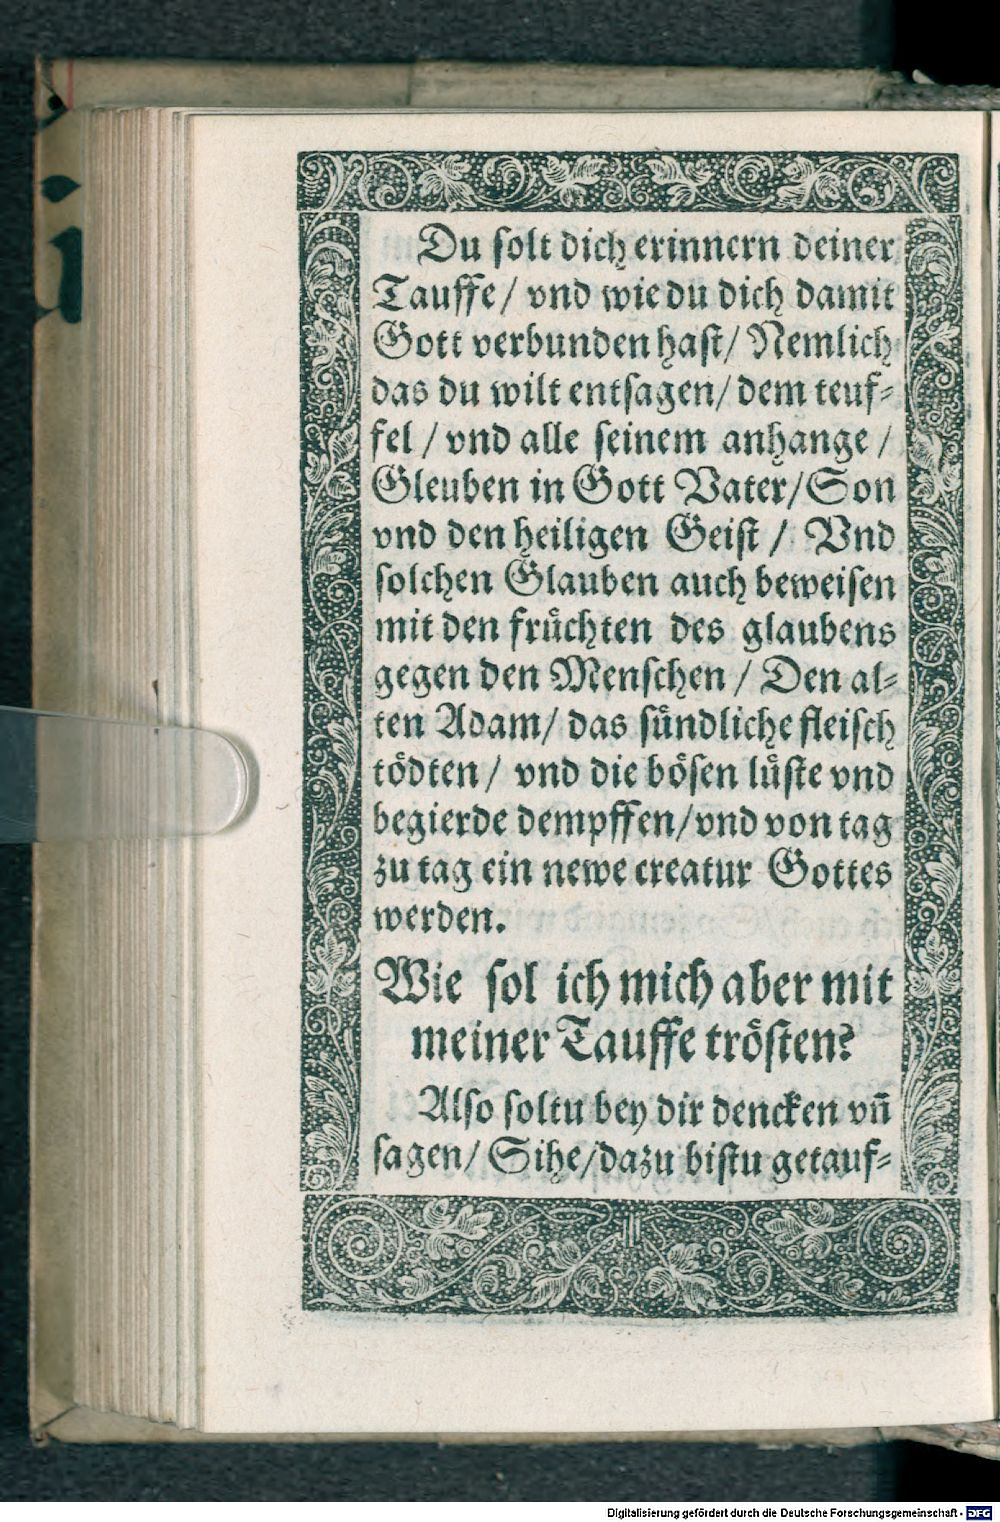 Du solt dich erinnern deiner
Tauffe / vnd wie du dich damit
Gott verbunden hast / Nemlich
das du wilt entsagen / dem teuf⸗
fel / vnd alle seinem anhange /
Gleuben in Gott Vater / Son
vnd den heiligen Geist / Vnd
solchen Glauben auch beweisen
mit den fruͤchten des glaubens
gegen den Menschen / Den al⸗
ten Adam / das suͤndliche fleisch
toͤdten / vnd die boͤsen luͤste vnd
begierde dempffen / vnd von tag
zu tag ein newe creatur Gottes
werden.
Wie sol ich mich aber mit
meiner Tauffe troͤsten?
Also soltu bey dir dencken vn̄
sagen / Sihe / dazu bistu getauf⸗
Digitalisierung gefördert durch die Deutsche Forschungsgemeinschaft - DFG